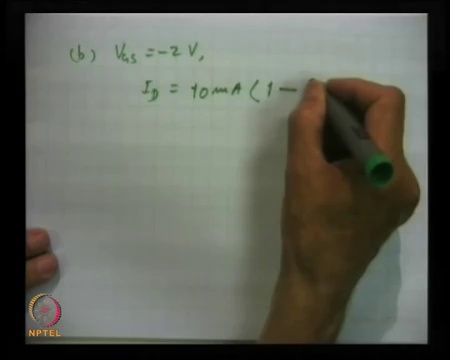 (b) VGS = -2 V,
ID = 10 mA ( 1 -
NPTEL